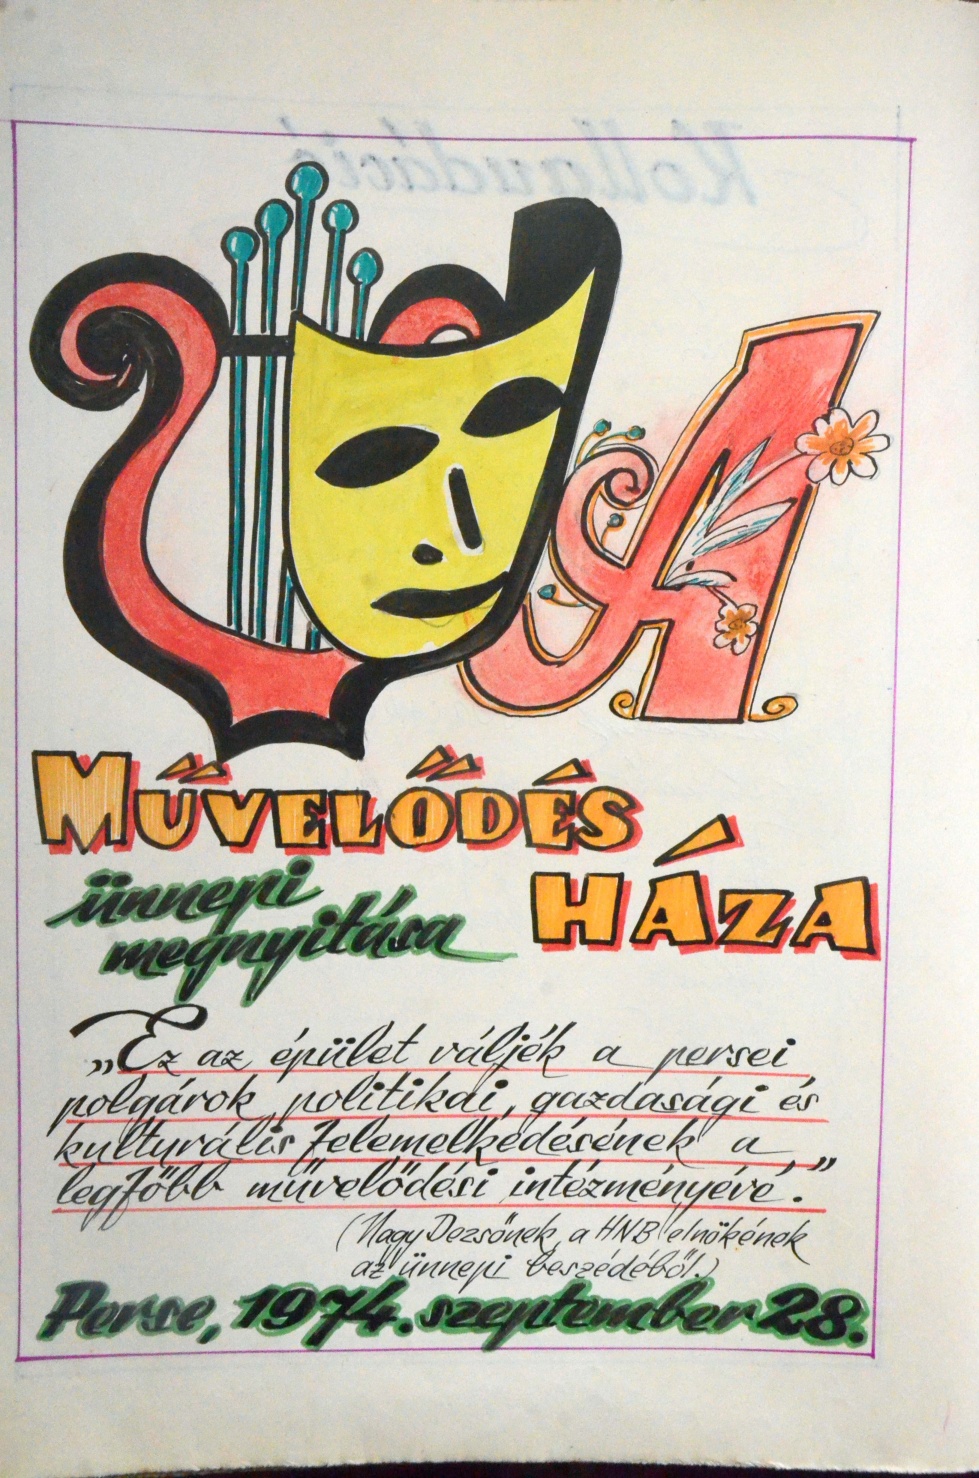 Kollaudáció
A
MŰVELŐDÉS
HÁZA
ünnepi
megnyitása
„Ez az épület váljék a persei
polgárok politikai, gazdasági és
kulturális felemelkedésének a
legfőbb művelődési intézményévé.”
(Nagy Dezsőnek, a HNB elnökének
az ünnepi beszédéből.)
Perse, 1974. szeptember 28.